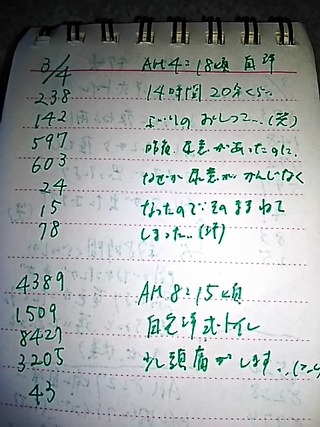 3/4 AM 4:18頃 自宅
238 14時間20分くらい
142 ぶりのおしっこ..(笑)
597 昨夜、尿意があったのに、
603 なぜか尿意がかんじなく
24 なったので、そのままねて
15 しまった..(汗)
78
4389 AM 8:15頃
1509 自宅洋式トイレ
8427 少し頭痛がします..
3205
43